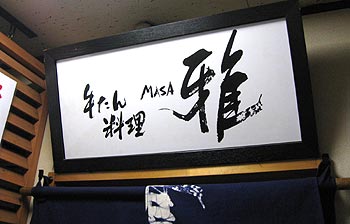 牛たん
料理
MASA
雅